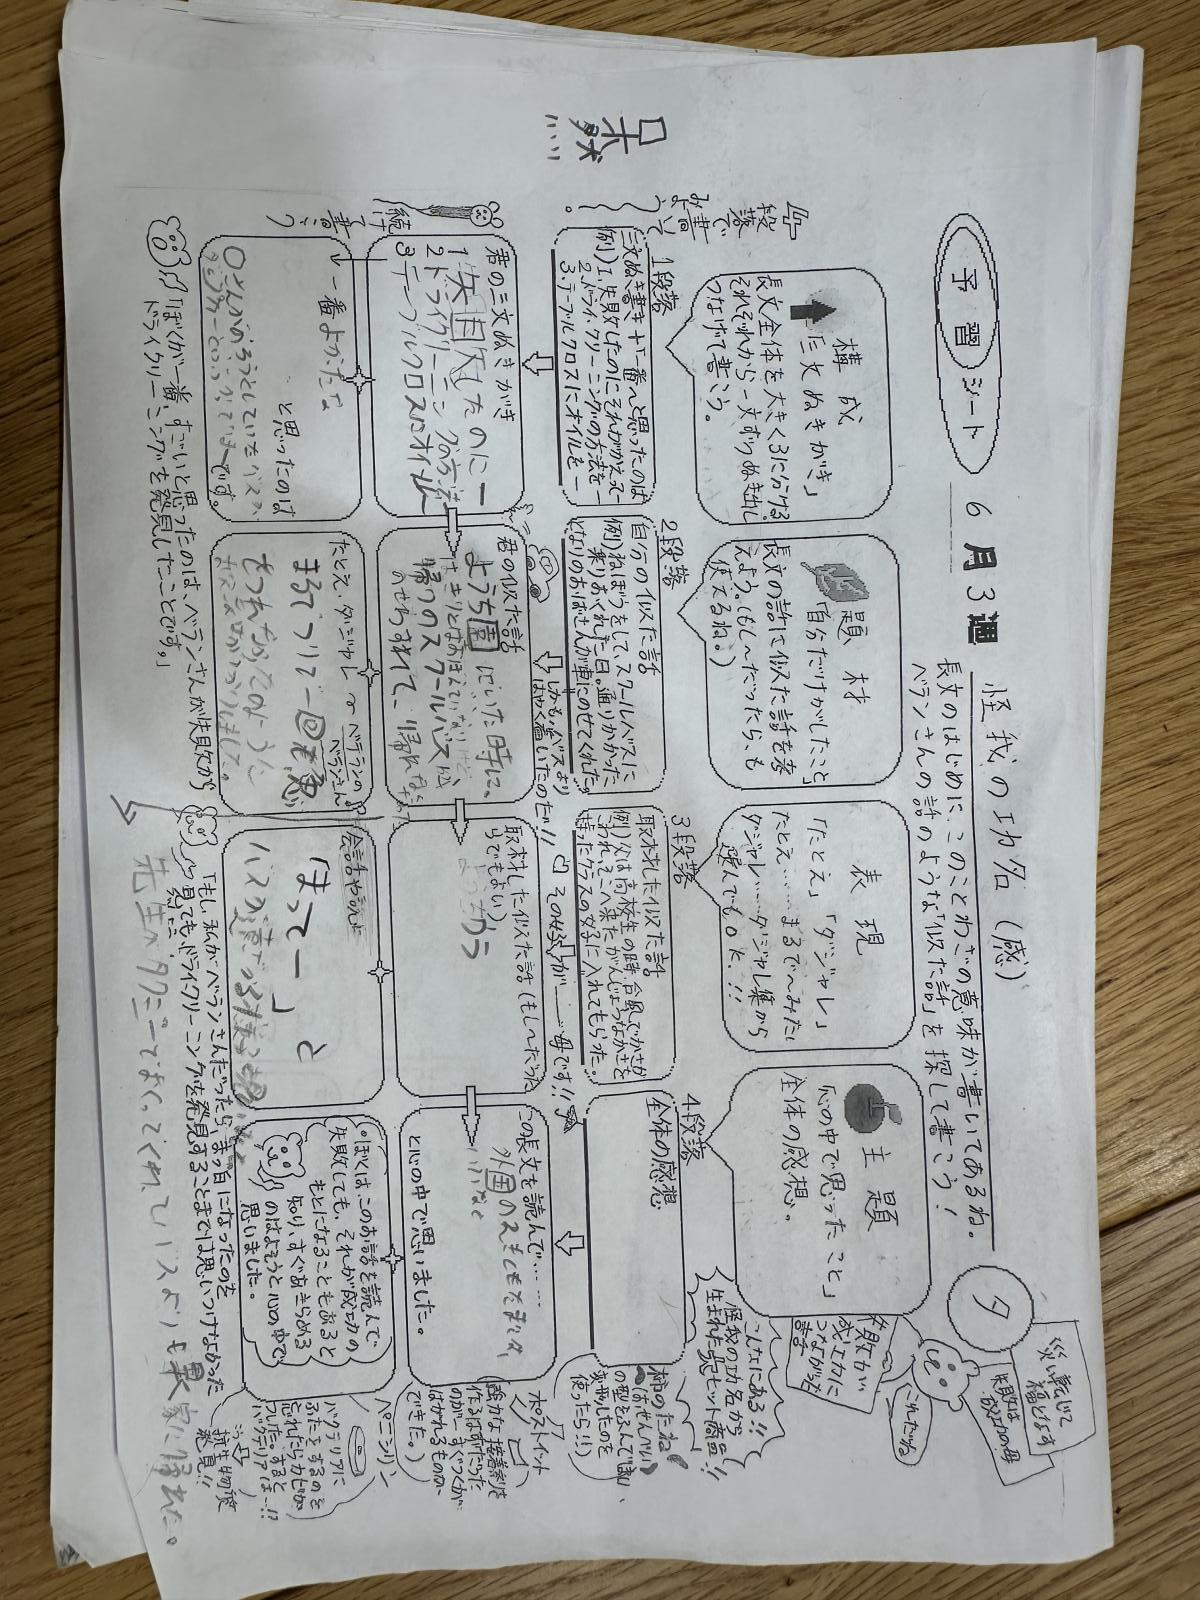 予習シート
6月3週
怪我の功名(感)
長文のはじめに、このことわざの意味が書いてあるね。
ベランさんの話のような「似た話」を探して書こう!
夕
災い転じて
福となす
失敗は
成功の母
これだね
失敗が
成功に
つながった
話
構成
「三文ぬきがき」
長文全体を大きく3に分ける。
それぞれから一文ずつぬき出し
つなげて書こう。
題材
「自分だけがしたこと」
長文の話に似た話を考
えよう。(もし〜だったら、も
使えるね!)
表現
「たとえ」「ダジャレ」
たとえ……まるで〜みたい
ダジャレ……ダジャレ集から
選んでもOK!!
主題
「心の中で思ったこと」
全体の感想。
こんなにある!!
怪我の功名から
生まれた大ヒット商品!!
段落で
書いて
みよう。
1段落
三文ぬき書き+一番〜と思ったのは
例)1.失敗したのにそれがかえって
2.ドライクリーニングの方法を一
3.テーブルクロスにオイルを一
2段落
自分の似た話
例)ねぼうをして、スクールバスに
乗りおくれた日。通りかかった
となりのおばさんが車にのせてくれた。
しかも、バスより
はやく着いたのだ!!
3段落
取材した似た話
例)父は高校生の時、台風でかさが
こわれ、そこへ来たがんじょうなかさを
持ったクラスの女子に入れてもらった。
その女子が……母です!!
4段落
全体の感想
柿のたね
(せんべい
の型をふんでしまい、
変形したのを
使ったら!!)
君の三文ぬきがき
1 失敗したのに一
2 ドライクリーニングの方法
3 テーブルクロスにオイル
続けて
書こう
君の似た話
ようち園にいた時に、
はっきりとはおぼえていないけど、
帰りのスクールバスに
のせわすれて、帰れなく
なった
取材した似た話(もし〜だった
らでもよい)
この長文を読んで……
外国の
と心の中で思いました。
ポストイット
(強力な接着剤を
作るはずだった
のが、すぐつくが
はがれるものが
できた。)
一番よかったな
と思ったのは
です。
たとえ・ダジャレ
ベテランの
ベランさん
まるで
会話や説に
はってー」と
ぼくは、このお話を読んで
失敗しても、それが成功の
もとになることもあると
知り、すぐあきらめる
のはよそうと心の中で
思いました。
ペニシリン
バクテリアに
ふたをするのを
忘れたらカビが
はえた。すると
バクテリアは…!?
抗生物質
発見!!
「ぼくが一番、すごいと思ったのは、ベランさんが失敗から
ドライクリーニングを発見したことです。」
「もし、私がベランさんだったら、まっ白になったのを
見ても、ドライクリーニングを発見することまでは思いつけなかった
先生がタクシーでおくってくれてバスよりも早く家に帰れた。